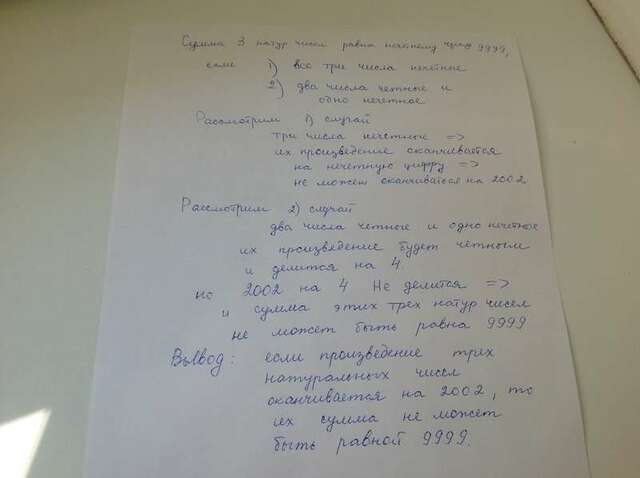 Сумма 3 натур чисел равна нечетному числу 9999,
если 1) все три числа нечетные
2) два числа четные и
одно нечетное
Рассмотрим 1) случай
три числа нечетные =>
их произведение оканчивается
на нечетную цифру =>
не может оканчиваться на 2002
Рассмотрим 2) случай
два числа четные и одно нечетное
их произведение будет четным
и делится на 4.
но 2002 на 4 Не делится =>
и сумма этих трех натур чисел
не может быть равна 9999
Вывод: если произведение трех
натуральных чисел
оканчивается на 2002, то
их сумма не может
быть равной 9999.